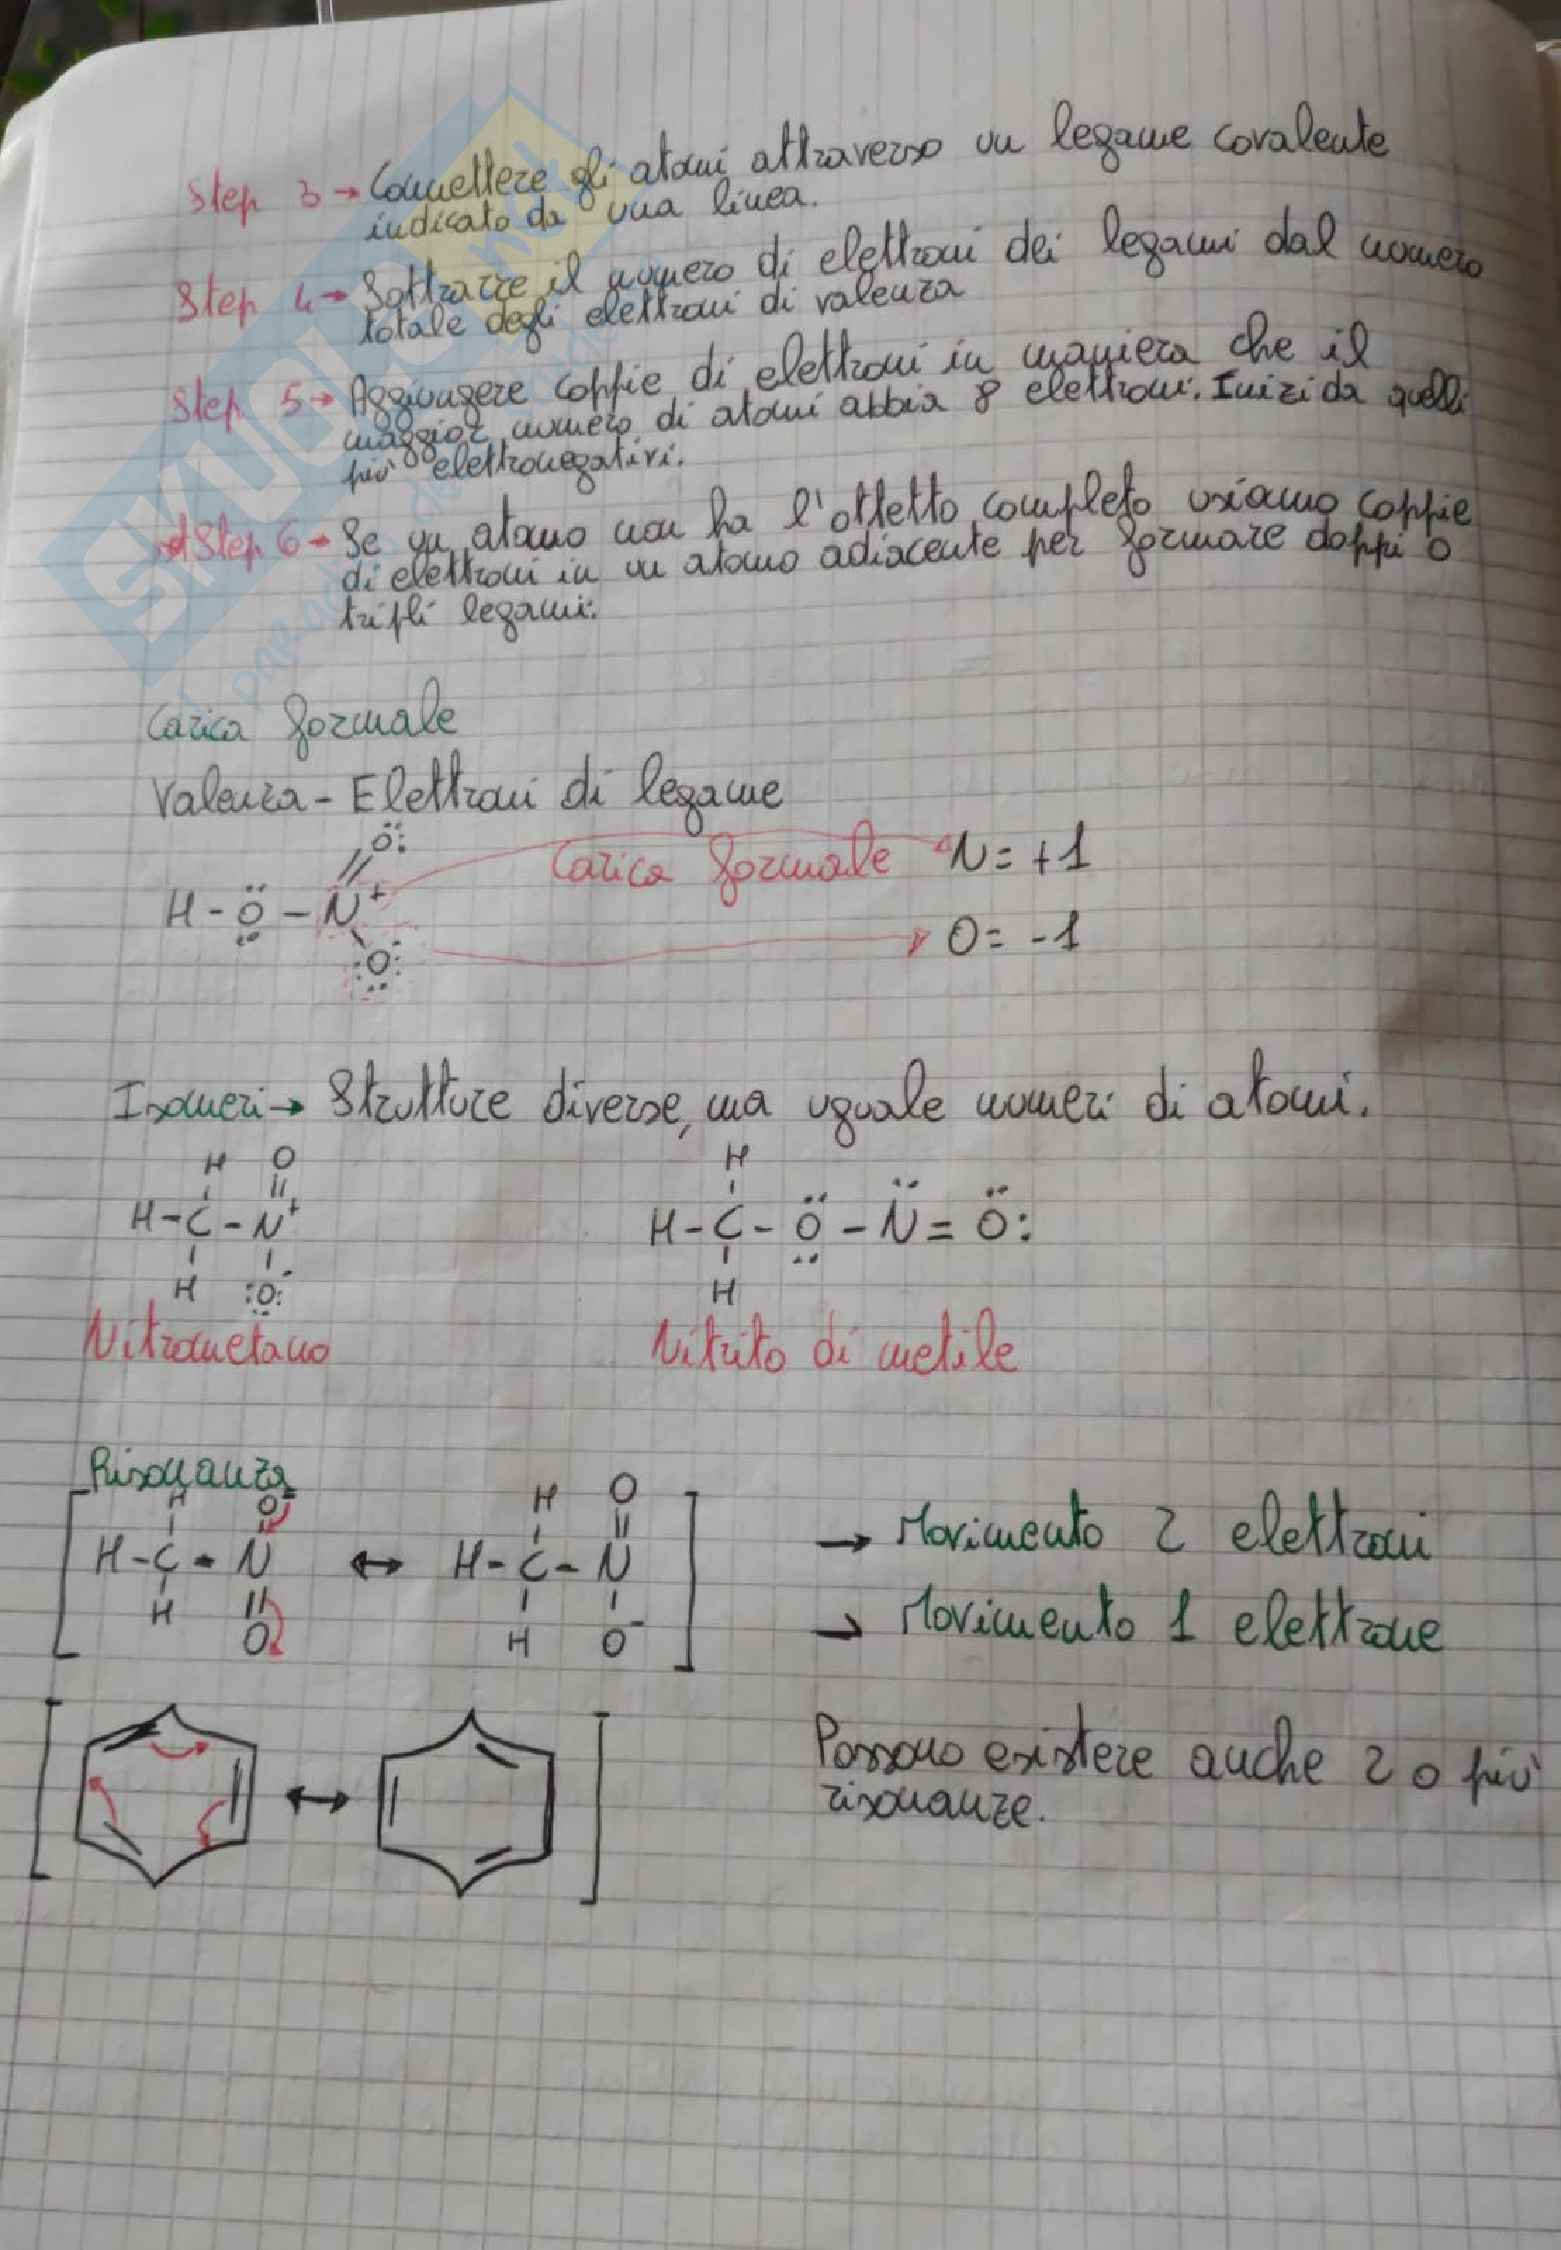 Step 3 → Connettere gli atomi attraverso un legame covalente
indicato da una linea.
Step 4 → Sottrarre il numero di elettroni dei legami dal numero
totale degli elettroni di valenza
Step 5 → Aggiungere coppie di elettroni in maniera che il
maggior numero di atomi abbia 8 elettroni. Inizi da quelli
più elettronegativi.
Step 6 → Se un atomo non ha l'ottetto completo usiamo coppie
di elettroni in un atomo adiacente per formare doppi o
tripli legami.
SKUOLA.net
Carica formale
Valenza - Elettroni di legame
O
Carica formale N = +1
H - O - N+
O = -1
O-
Isomeri → Strutture diverse, ma uguale numeri di atomi.
H O
H - C - N+
H O-
H
H - C - O - N = O
H
Nitrometano
Nitrito di metile
Risonanza
H O-
H - C - N
H O
↔
H O
H - C - N
H O-
→ Movimento 2 elettroni
⇀ Movimento 1 elettrone
↔
Possono esistere anche 2 o più
risonanze.